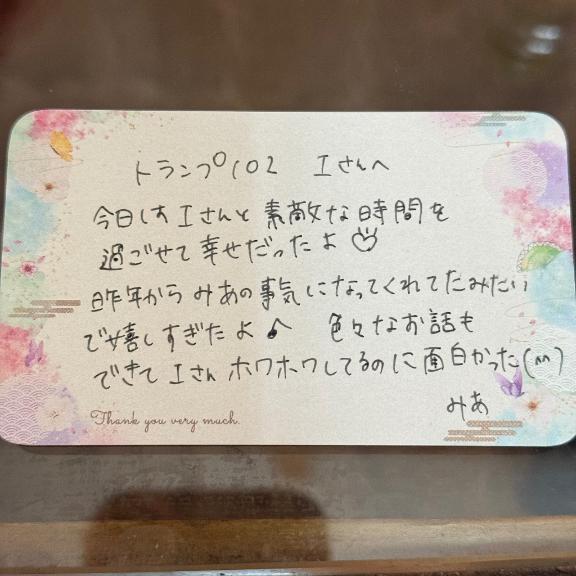 トランプ102 Iさんへ
今日はIさんと素敵な時間を
過ごせて幸せだったよ♡
昨年からみあの事気になってくれてたみたい
で嬉しすぎたよ♪ 色々なお話も
できてIさんホワホワしてるのに面白かった(^^)
みあ
Thank you very much.